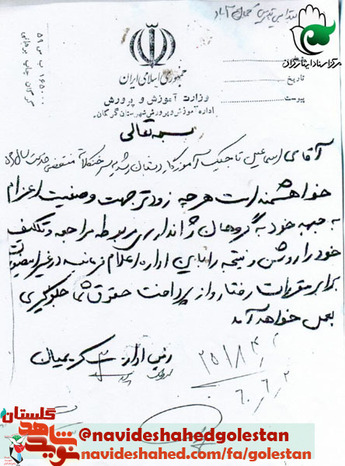 مرکز اسناد ایثارگران
جمهوری اسلامی ایران
وزارت آموزش و پرورش
اداره آموزش و پرورش شهرستان گرگان
تاریخ
پیوست
بسمه تعالی
آقای اسماعیل تاجیک آموزگار دبستان
خواهشمند است هر چه زودتر جهت وضعیت اعزام
به جبهه خود به گروهان ژاندارمری مربوطه مراجعه و تکلیف
خود را روشن و نتیجه را باین اداره اعلام فرمائید در غیر اینصورت
برابر مقررات رفتار و از پرداخت حقوق شما جلوگیری
بعمل خواهد آمد
رئیس اداره کریمیان
گلستان
نوید شاهد
@navideshahedgolestan
navideshahed.com/fa/golestan